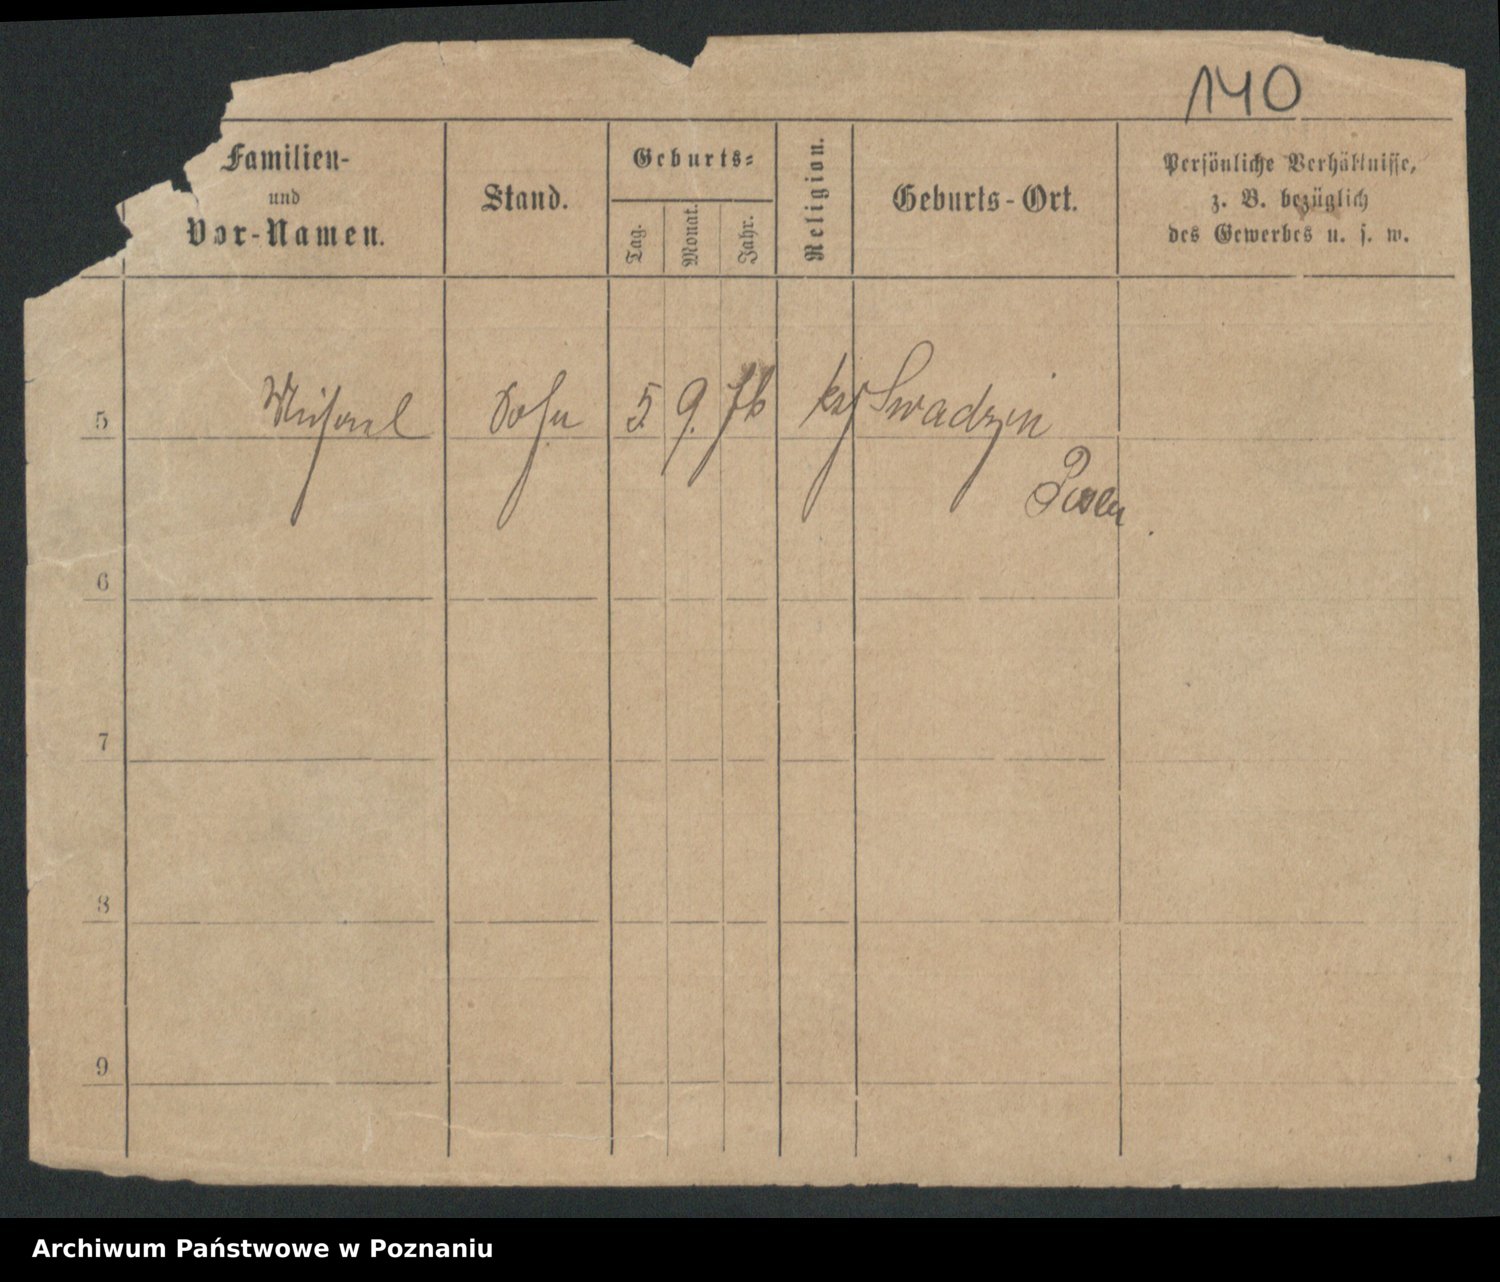 140
Familien-
und
Vor-Namen.
Stand.
Geburts-
Tag.
Monat.
Jahr.
Religion.
Geburts-Ort.
Persönliche Verhältnisse,
z. B. bezüglich
des Gewerbes u. s. w.
5 Michael Sohn 5. 9. 76 Swadzin
Posen
6
7
8
9
Archiwum Państwowe w Poznaniu